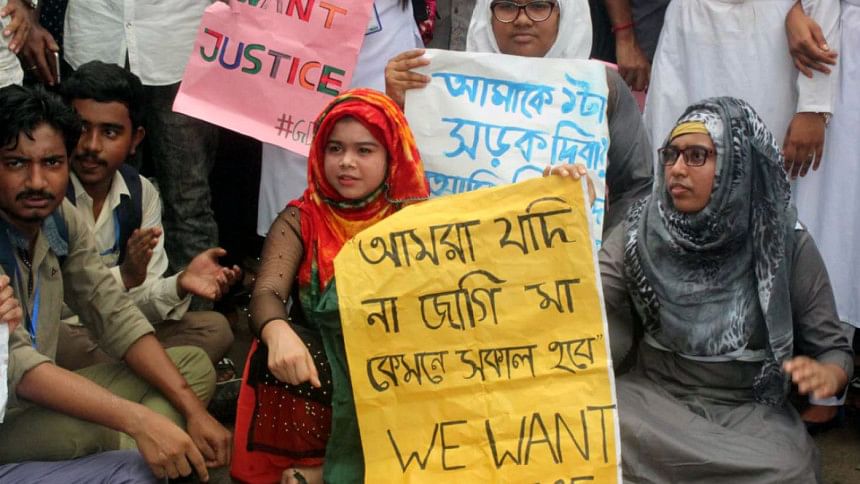 WANT
JUSTICE
আমাকে ১টা
সড়ক দিবা?
"আমরা যদি
না জাগি মা
কেমনে সকাল হবে"
WE WANT